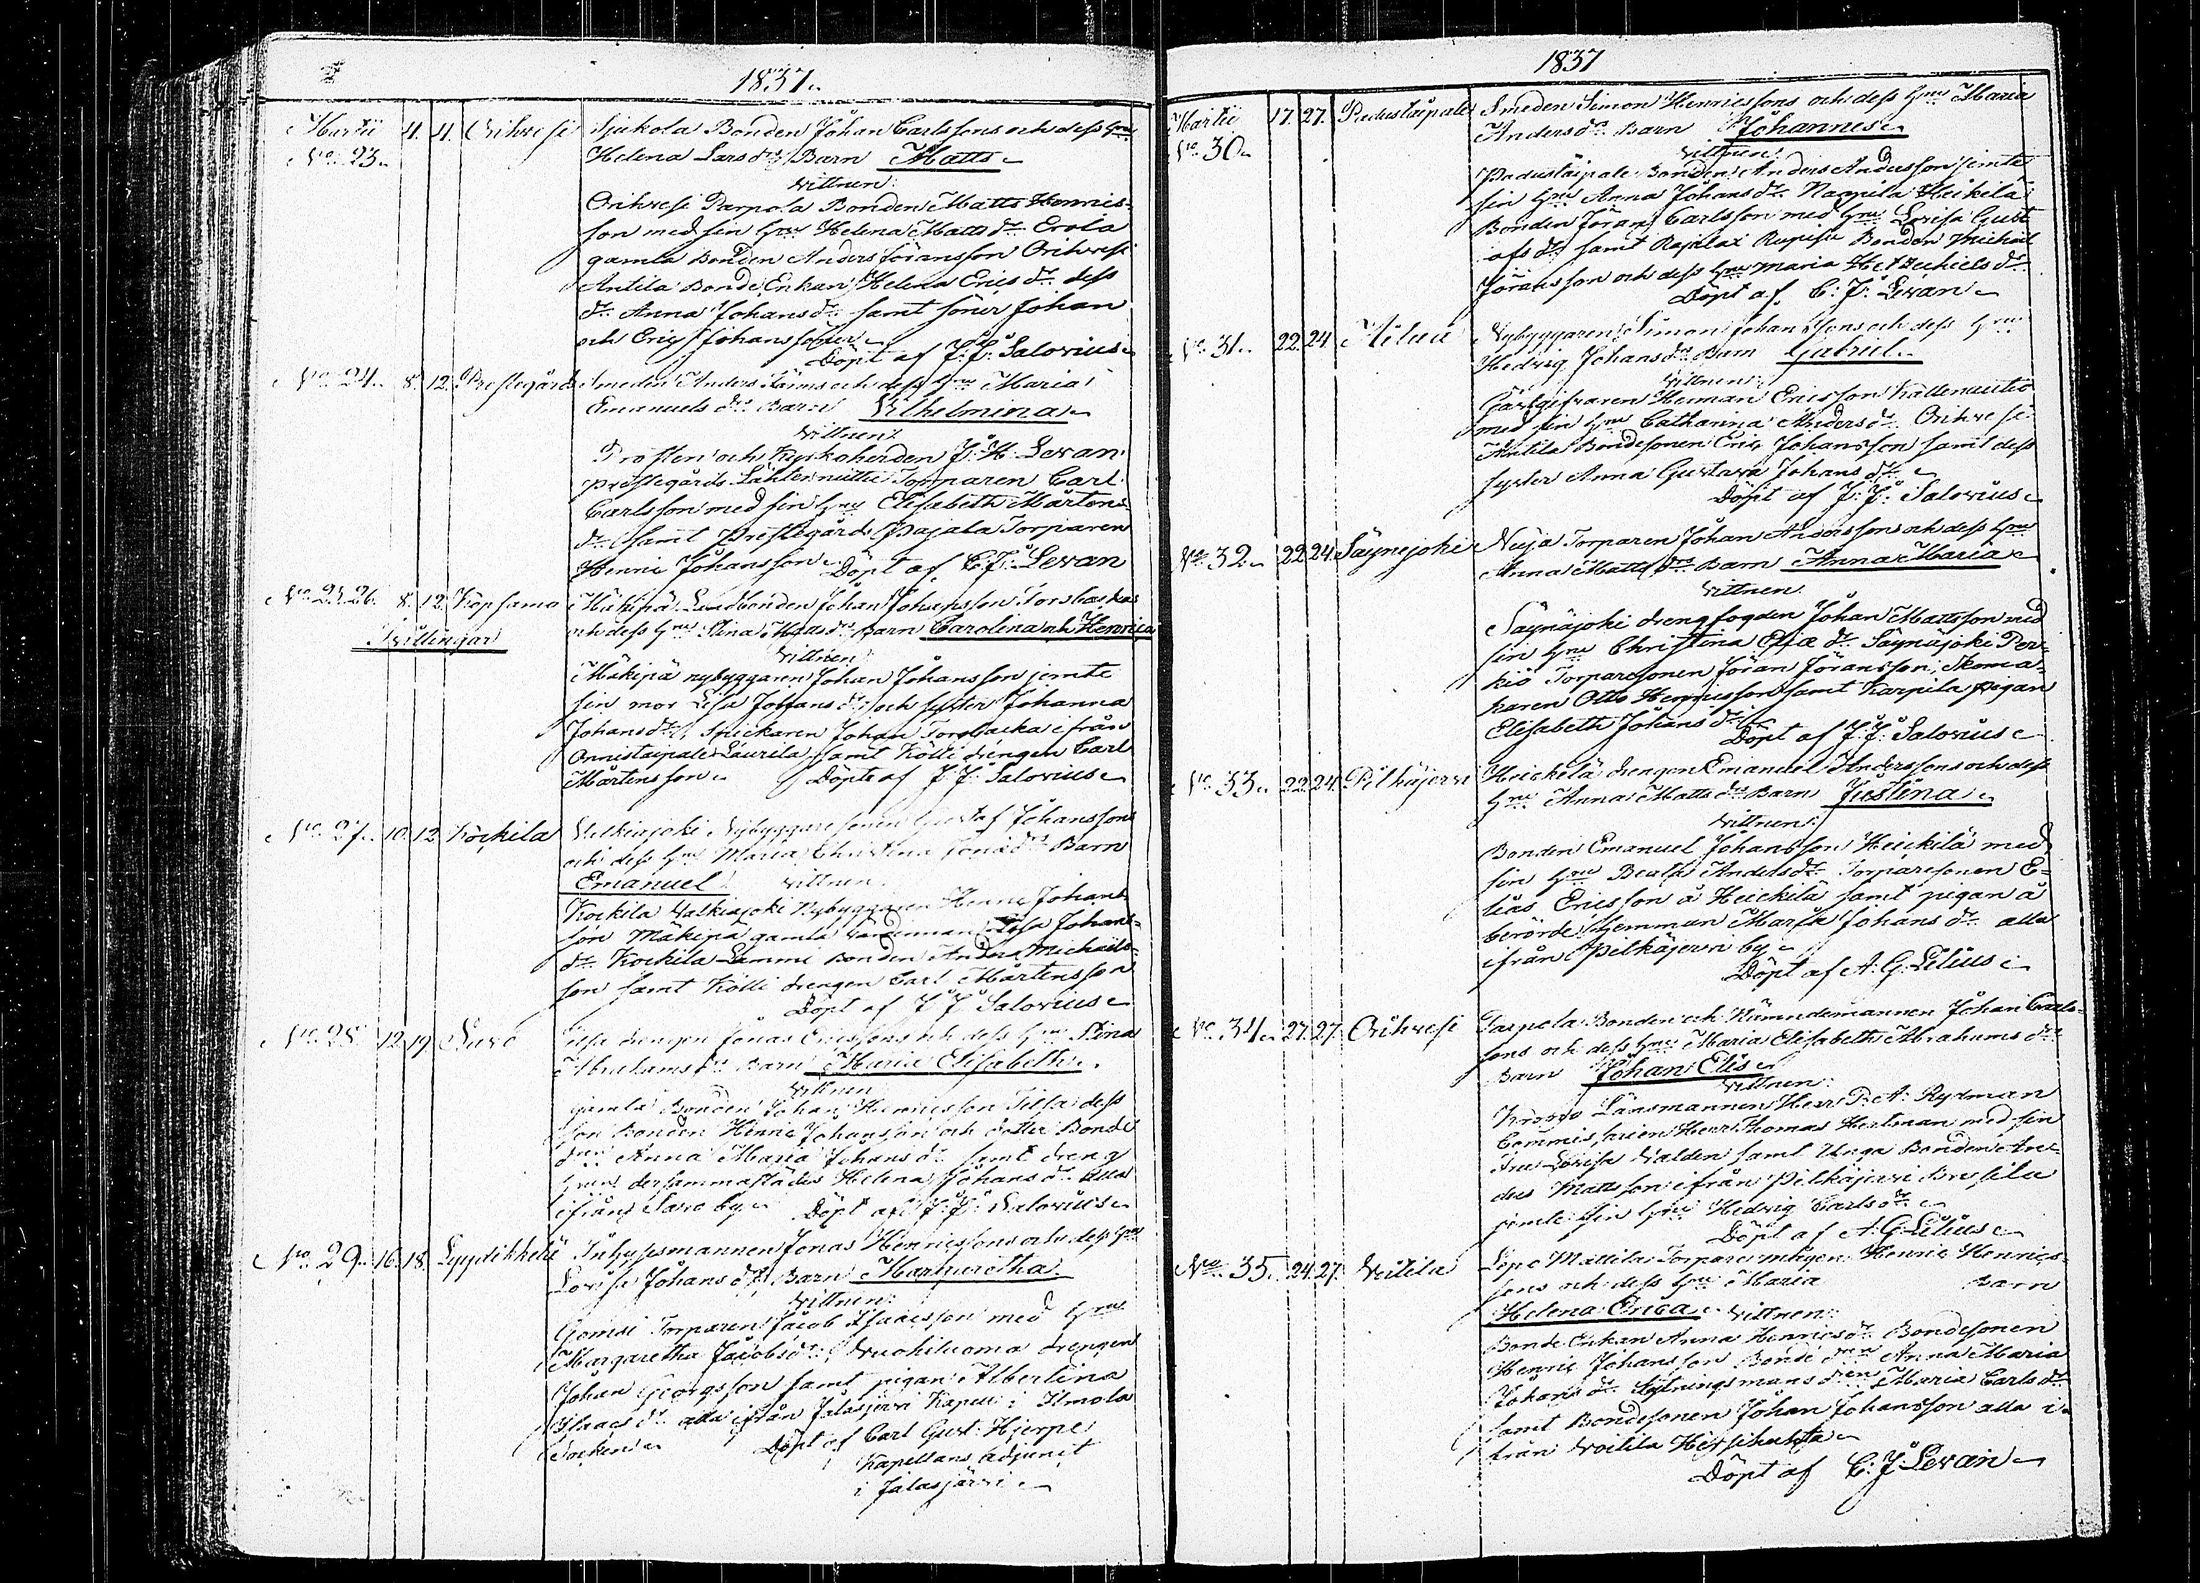 1837.
Martii 4. 4. Orihvesi Sjukola Bonden Johan Carlssons och dess Hru
No 23. Helena Larsdr Barn Matts
Vittnen:
Orihvesi Parpola Bonden Matts Henrics-
son med sin Hru Helena Mattsdr Erola
gamla Bonden Anders Jöransson Orihvesi
Antila Bonde Enkan Helena Ericsdr dess
dr Anna Johansdr samt söner Johan
och Eric Johanssöner
Döpt af J: J: Salovius
No 24. 8. 12. Prestegårds Smeden Anders och dess Hru Maria
Emanuelsdr Barn Vilhelmina
Vittnen:
Prosten och Kyrkoherden J: H: Levan
Prestegårds Lähteenmitti Torparen Carl
Carlsson med sin Hru Elisabeth Mårtens
dr samt Prestegårds Pajala Torparen
Henric Johansson Döpt af C: J: Levan
No 25. 26. 8. 12. Köpsamo Mäkipä Landbonden Johan Johansson Torsbacka
Tvillingar och dess Hru Stina Mattsdr Barn Carolina och Henrica
Vittnen:
Mäkipä nybyggaren Johan Johansson jemte
sin mor Lisa Johansdr och syster Johanna
Johansdr, Johan Torsbacka ifrån
Onnistaipale Laurila samt Kölli drengen Carl
Mårtensson Döpte af J: J: Salovius
No 27. 10. 12. Kockila Valkiajoki Nybyggaresonen Gustaf Johanssons
och dess Hru Maria Christina Jonædr Barn
Emanuel Vittnen.
Kockila Valkiajoki Nybyggaren Henric Johans-
son Mäkipä gamla Lisa Johans-
dr Kockila Lammi Bonden Anders Michaels-
son samt Kölli drengen Carl Mårtensson
Döpt af J: J: Salovius
No 28. 12. 19. Savo drengen Jonas Ericssons och dess Hru Stina
Abrahamsdr Barn Maria Elisabeth
Vittnen
gamla Bonden Johan Henricsson dess
son Bonden Henric Johansson och dotter Bonde
drn Anna Maria Johansdr samt dreng
Hrun dersammastädes Helena Johansdr alla
ifrån Savo by Döpt af J: J: Salovius
No 29. 16. 18. Inhysesmannen Jonas Henricssons och dess Hru
Lovisa Johansdr Barn Margaretha.
Vittnen:
Torparen Jacob Isaacsson med Hru
Margaretha Jacobsdr, Vuohiluoma drengen
Johan Georgsson samt pigan Albertina
Isaacsdr alla ifrån Jalasjärvi Kapell i Ilmola
Socken Döpt af Carl Gust. Hjerpe
Kapellans Adjunct
i Jalasjärvi
1837
Martii 17. 27. Padustaipale Smeden Simon Henricssons och dess Hru Maria
No 30 Andersdr Barn Johannes
Vittnen:
Padustaipale Bonden Anders Andersson jemte
sin Hru Anna Johansdr Heikilä
Bonden Jöran Carlsson med Hru Lovisa Gust-
afsdr samt Rajalax Bonden Michael
Jöransson och dess Hru Maria Hezechielsdr
Döpt af C: J: Levan
No 31. 22. 24. Nybyggaren Simon Johanssons och dess Hru
Hedvig Johansdr Barn Gabriel
Vittnen:
Gästgifvaren Herman Ericsson
med sin Hru Catharina Andersdr Orihvesi
Antila Bondesonen Eric Johansson samt dess
syster Anna Gustava Johansdr
Döpt af J: J: Salovius
No 32. 22. 24. Säynejoki Neija Torparen Johan Anderssons och dess Hru
Anna Mattsdr Barn Anna Maria
Vittnen
Säynäjoki drengfogden Johan Mattsson med
sin Hru Christina Esiædr Säynäjoki Per-
kiö Torparesonen Jöran Jöransson, Skoma-
karen Otto Henricsson samt Karpila pigan
Elisabeth Johansdr
Döpt af J: J: Salovius
No 33. 22. 24. Pilkäjervi Heickilä drengen Emanuel Anderssons och dess
Hru Anna Mattsdr Barn Justina
Vittnen:
Bonden Emanuel Johansson Heickilä med
sin Hru Beata Andersdr Torparesonen E-
lias Ericsson å Heickilä samt pigan å
berörde Hemman Maria Johansdr alla
ifrån Pilkäjervi by
Döpt af A: G: Lilius
No 34. 27. 27. Orihvesi Parpola Bonden och Nämndemannen Johan Carls-
sons och dess Hru Maria Elisabeth Abrahamsdr
Barn Johan Elis
Vittnen:
Länsmannen Herr P: A: Rydman
Commissarien Herr Thomas Hertman med sin
Fru Lovisa Valden samt Unga Bonden An-
ders Mattsson ifrån Pilkäjervi Bresila
jemte sin Hru Hedvig Carlsdr
Döpt af A: G: Lilius
No 35. 24. 27. Voitila Mattila Torpare mågen Henric Henrics-
sons och dess Hru Maria Barn
Helena Erica Vittnen:
Bonde Enkan Anna Henricsdr Bondesonen
Henric Johansson Bonde drn Anna Maria
Johansdr Sytningsmans drn Maria Carlsdr
samt Bondesonen Johan Johansson alla i-
från Voitila
Döpt af C: J: Levan